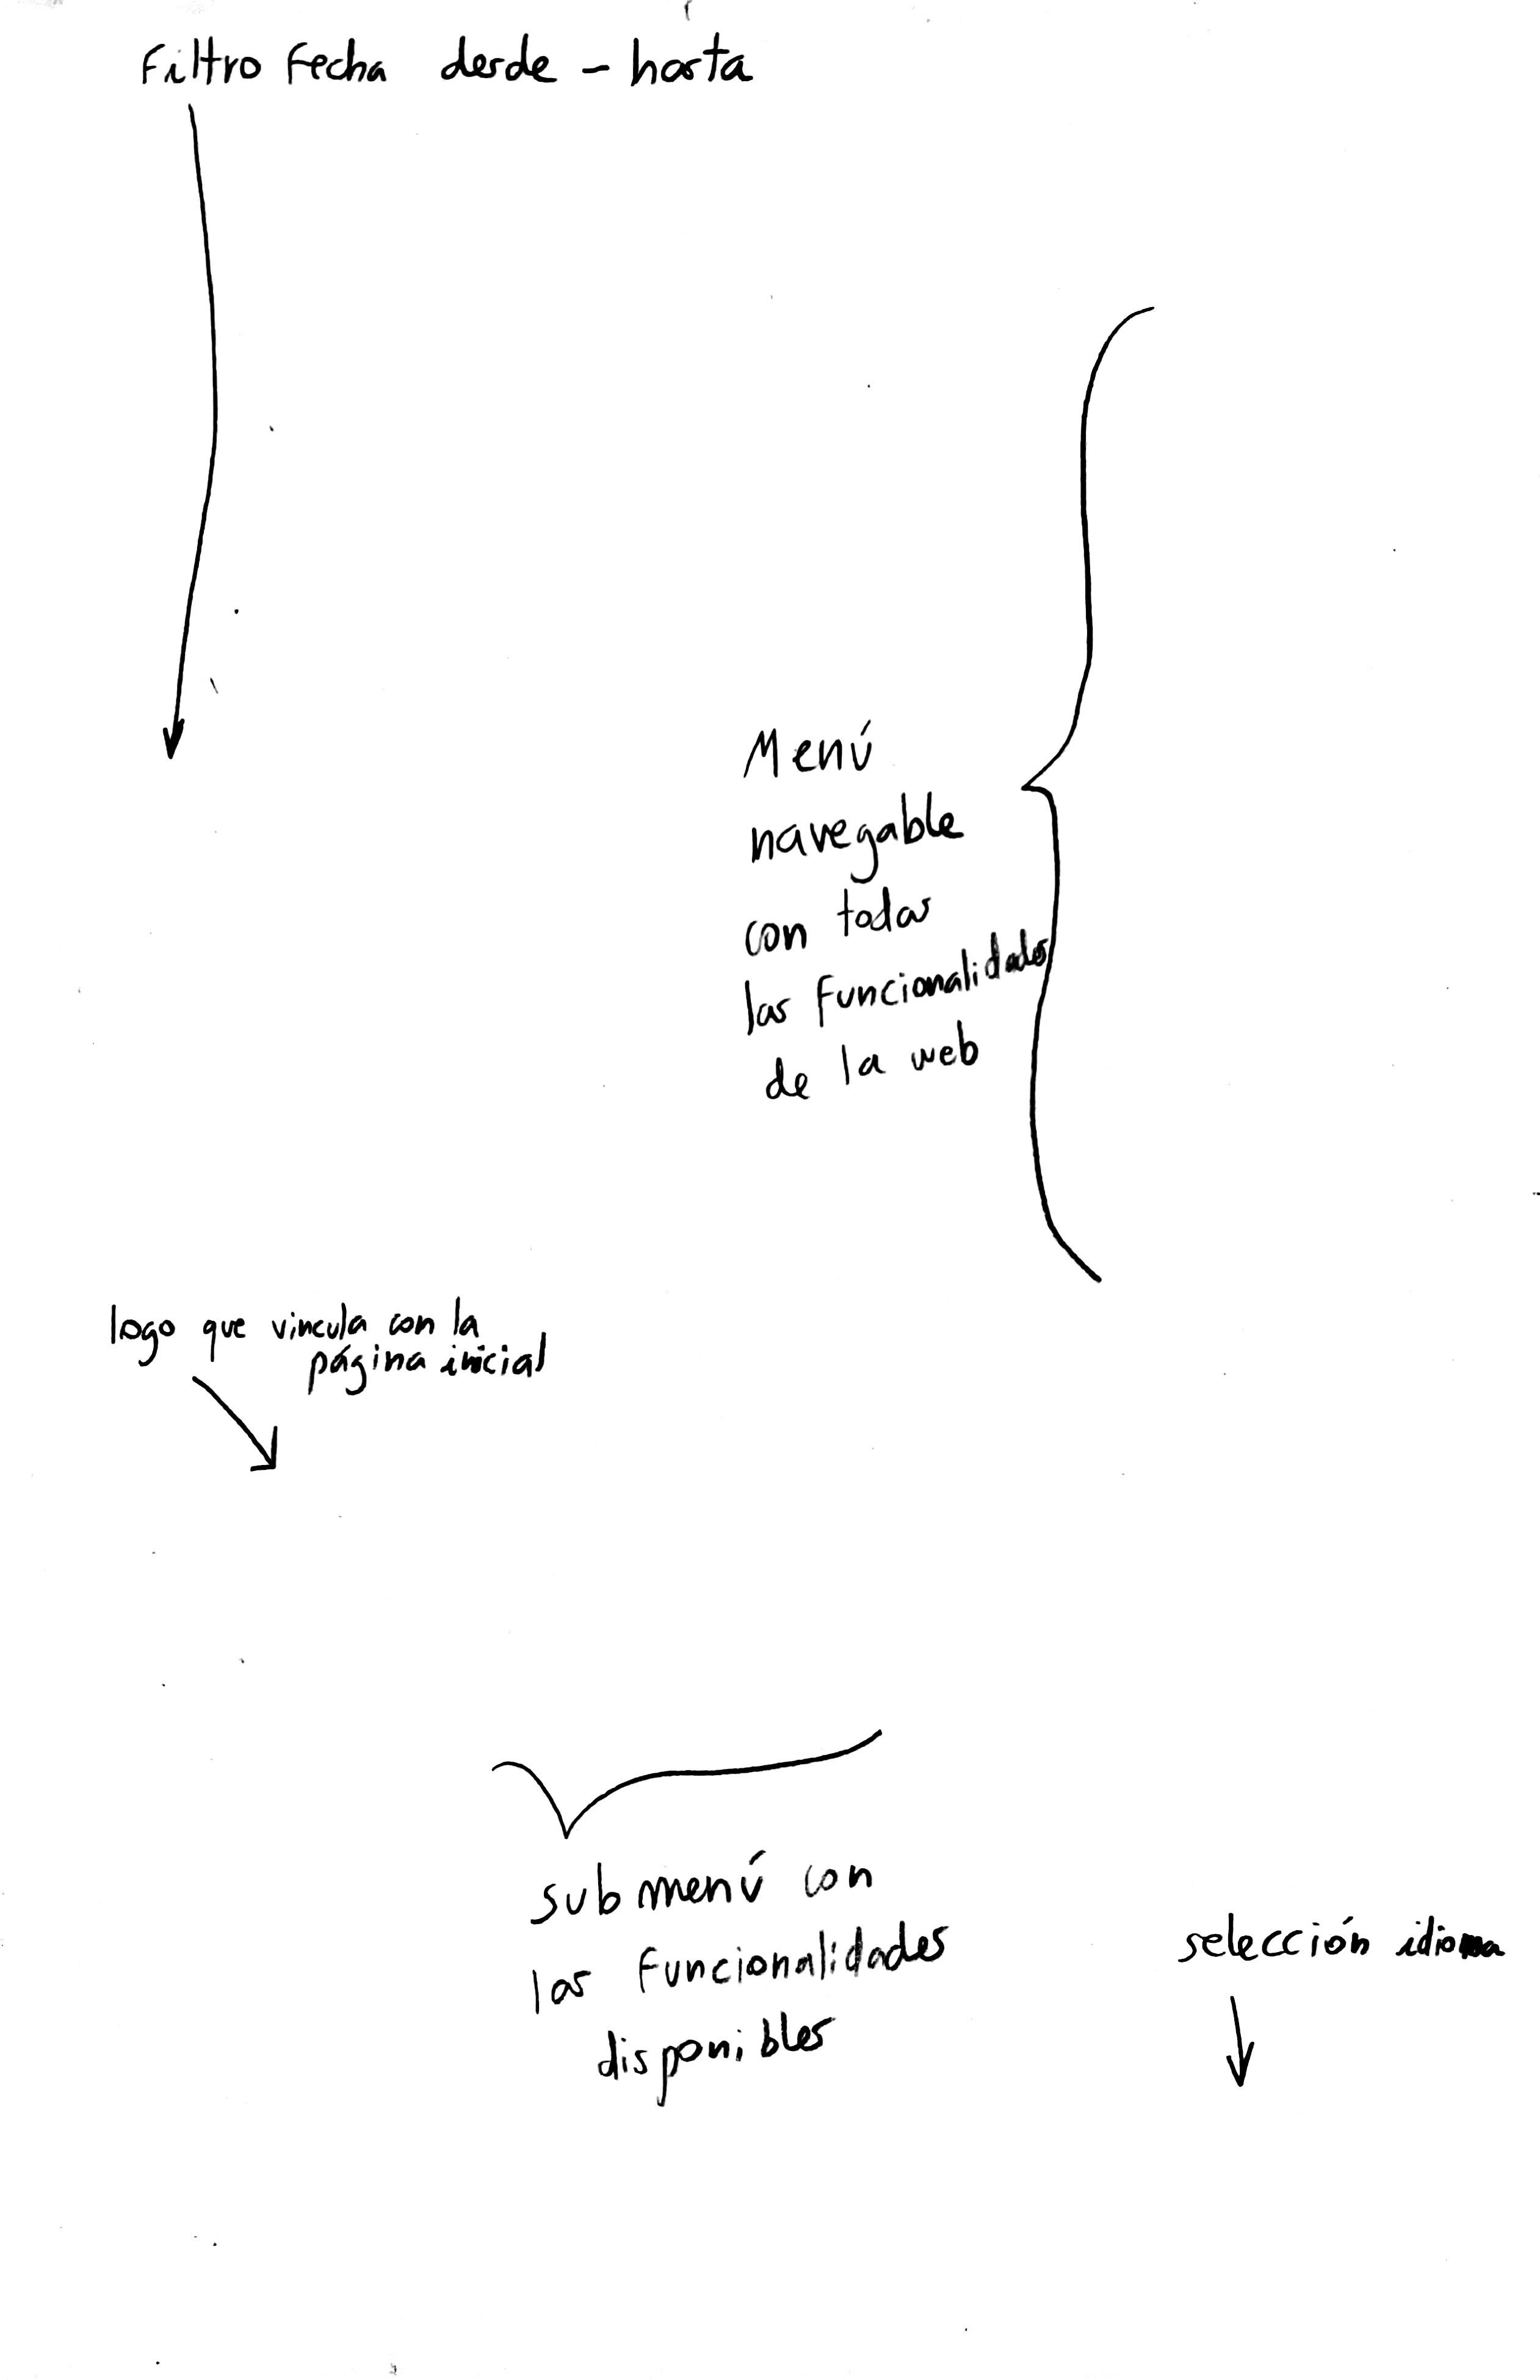 Filtro Fecha desde - hasta
Menú
navegable
con todas
las Funcionalidades
de la web
logo que vincula con la
página inicial
submenú con
las Funcionalidades
disponibles
selección idioma